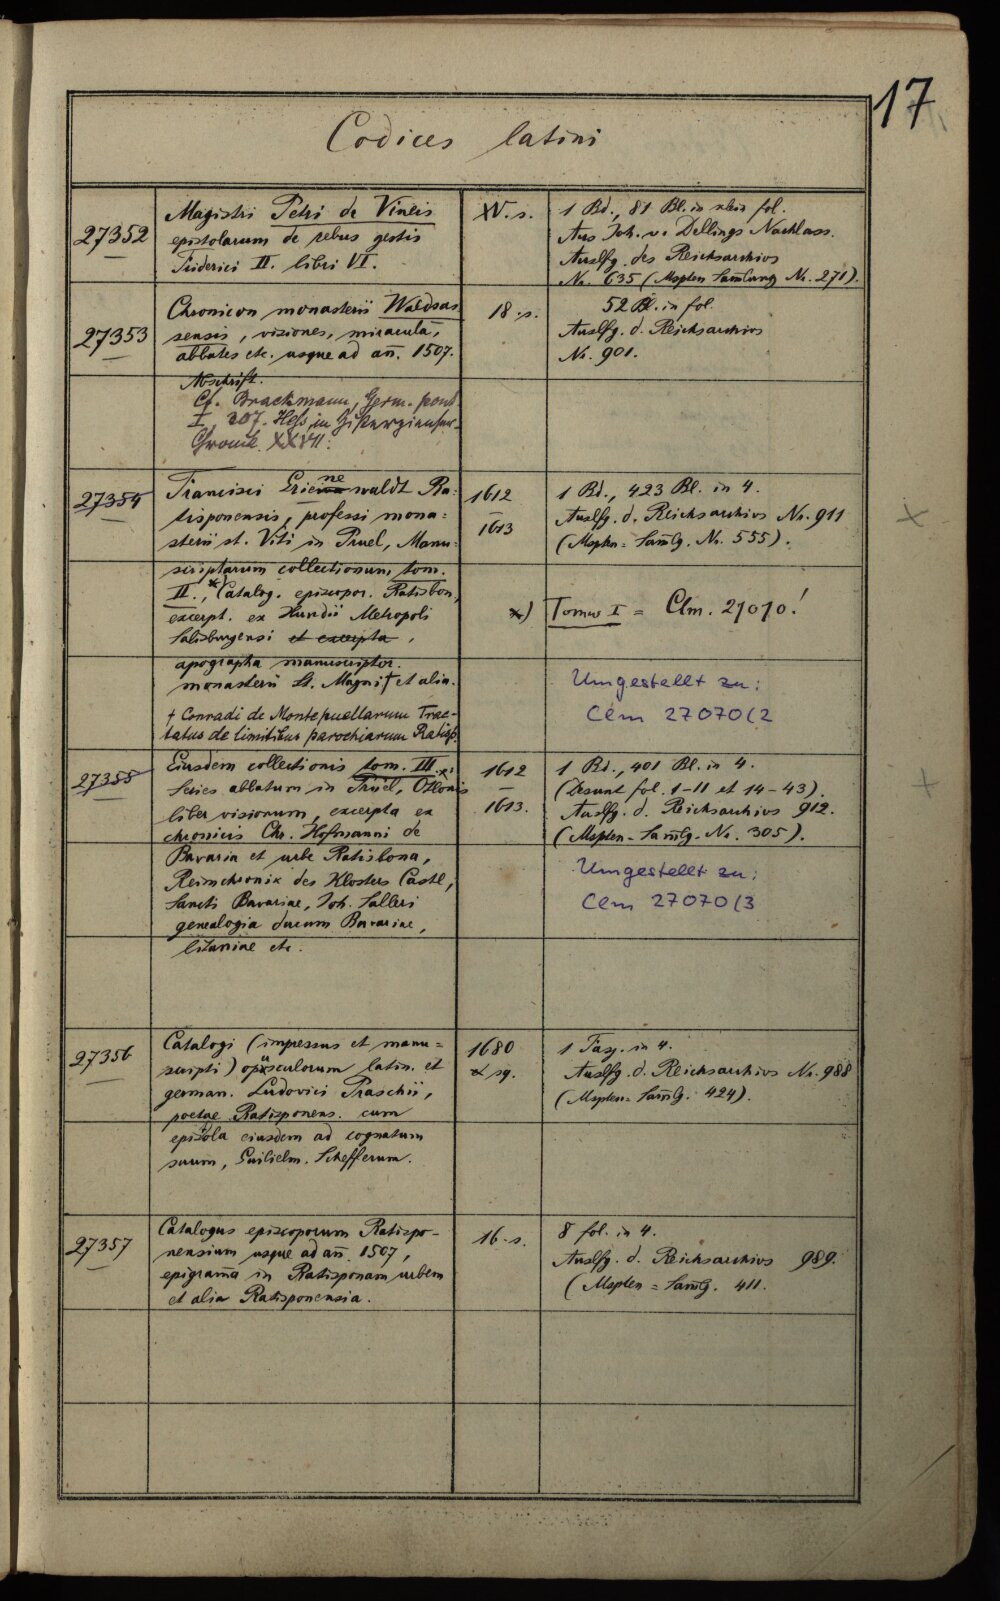 17
Codices latini
27352
Magistri Petri de Vineis
epistolarum de rebus gestis
Friderici II. libri VI.
XV. s.
1 Bd., 81 Bl. in klein fol.
Aus Joh. v. Dellings Nachlass.
Auslfg. des Reichsarchivs
Nr. 635 (Mspten Sam̄lung Nr. 271).
27353
Chronicon monasterii Waldsas
sensis, visiones, miracula,
abbates etc. usque ad an̄. 1507.
Abschrift.
Cf. Brackmann, Germ. pont
I, 307. Hess, in Zisterzienser-
Chronik XXVII.
18. s.
52 Bl. in fol.
Auslfg. d. Reichsarchivs
Nr. 901.
27354
Francisci Grienewaldt Ra=
tisponensis, professi mona=
sterii st. Viti in Pruel, Manu=
scriptarum collectionum, tom.
II., *) Catalog. episcopor. Ratisbon,
excerpt. ex Hundii Metropoli
Salisburgensi et excerpta,
apographa manuscriptor.
monasterii St. Magni † et alia.
† Conradi de Monte puellarum Trac-
tatus de limitibus parochiarum Ratisp.
1612
–
1613
1 Bd., 423 Bl. in 4.
Auslfg. d. Reichsarchivs Nr. 911
(Mspten= Sam̄lg. Nr. 555).
*) Tomus I = Clm. 27070!
Umgestellt zu:
Clm 27070(2
27355
Eiusdem collectionis tom. III
Series abbatum in Prüel, Otlonis
liber visionum, excerpta ex
chronicis Chr. Hofmanni de
Bavaria et urbe Ratisbona,
Reimchronik des Klosters Castl,
Sancti Bavariae, Joh. Salleri
genealogia ducum Bavariae,
litaniae etc.
1612
–
1613.
1 Bd., 401 Bl. in 4.
(Desunt fol. 1–11 et 14–43).
Auslfg. d. Reichsarchivs 912.
(Mspten= Sam̄lg. Nr. 305).
Umgestellt zu:
Clm 27070(3
27356
Catalogi (impressus et manu=
scripti) opusculorum latin. et
german. Ludovici Praschii,
poetae Ratisponens. cum
epistola eiusdem ad cognatum
suum, Guilielm. Schefferum.
1680
& sq.
1 Fasz. in 4.
Auslfg. d. Reichsarchivs Nr. 988
(Mspten= Sam̄lg. 424).
27357
Catalogus episcoporum Ratispo-
nensium usque ad an̄. 1507,
epigram̄a in Ratisponam urbem
et alia Ratisponensia.
16. s.
8 fol. in 4.
Auslfg. d. Reichsarchivs 989.
(Mspten= Sam̄lg. 411.